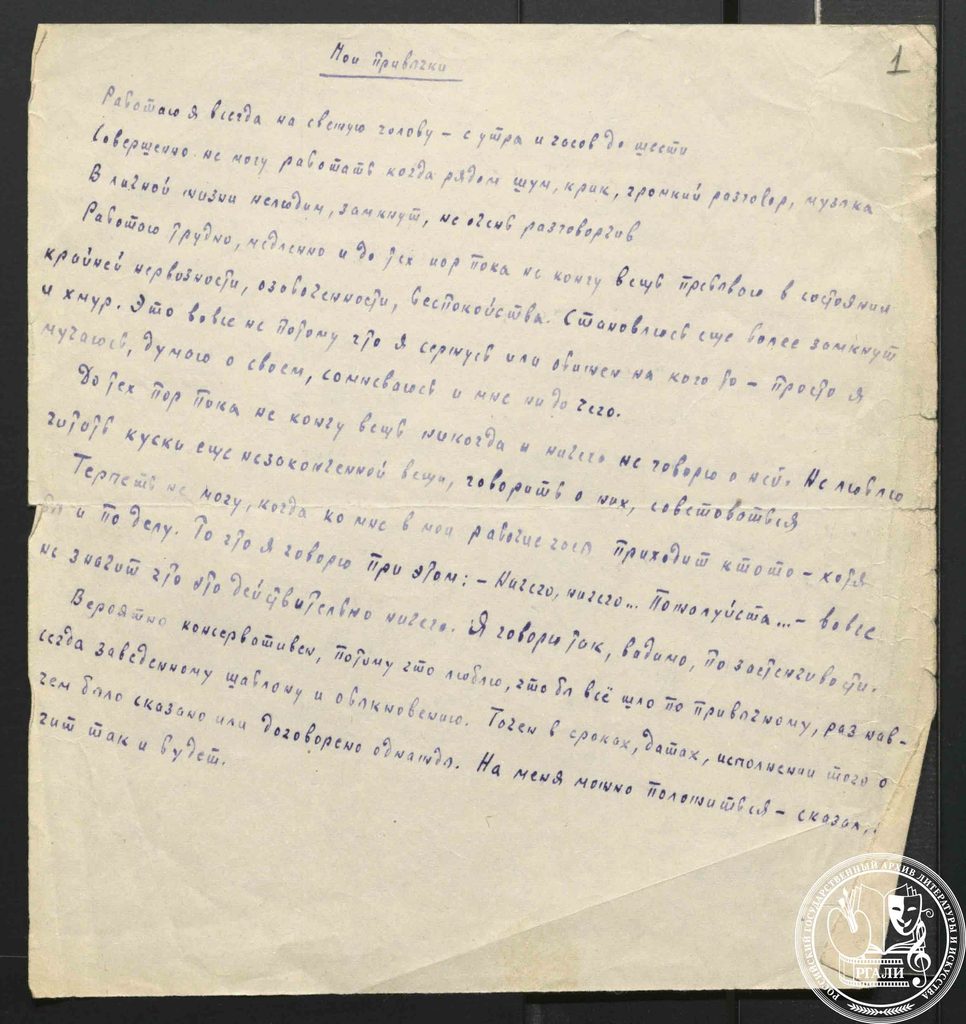 Мои привычки
1
Работаю я всегда на свежую голову – с утра и часов до шести
Совершенно не могу работать когда рядом шум, крик, громкий разговор, музыка
В личной жизни нелюдим, замкнут, не очень разговорчив
Работаю трудно, медленно и до тех пор пока не кончу вещь пребываю в состоянии
крайней нервозности, озабоченности, беспокойства. Становлюсь еще более замкнут
и хмур. Это вовсе не потому что я сержусь или обижен на кого то – просто я
мучаюсь, думаю о своем, сомневаюсь и мне ни до чего.
До тех пор пока не кончу вещь никогда и ничего не говорю о ней. Не люблю
читать куски еще незаконченной вещи, говорить о них, советоваться
Терпеть не могу, когда ко мне в мои рабочие часы приходит кто то – хотя
бы и по делу. То что я говорю при этом: – Ничего, ничего... Пожалуйста... – вовсе
не значит что это действительно ничего. Я говорю так, видимо, по застенчивости.
Вероятно консервативен, потому что люблю, что бы всё шло по привычному, раз нав-
сегда заведенному шаблону и обыкновению. Точен в сроках, датах, исполнении того о
чем было сказано или договорено однажды. На меня можно положиться – сказал,
чит так и будет.
РОССИЙСКИЙ ГОСУДАРСТВЕННЫЙ АРХИВ ЛИТЕРАТУРЫ И ИСКУССТВА
РГАЛИ